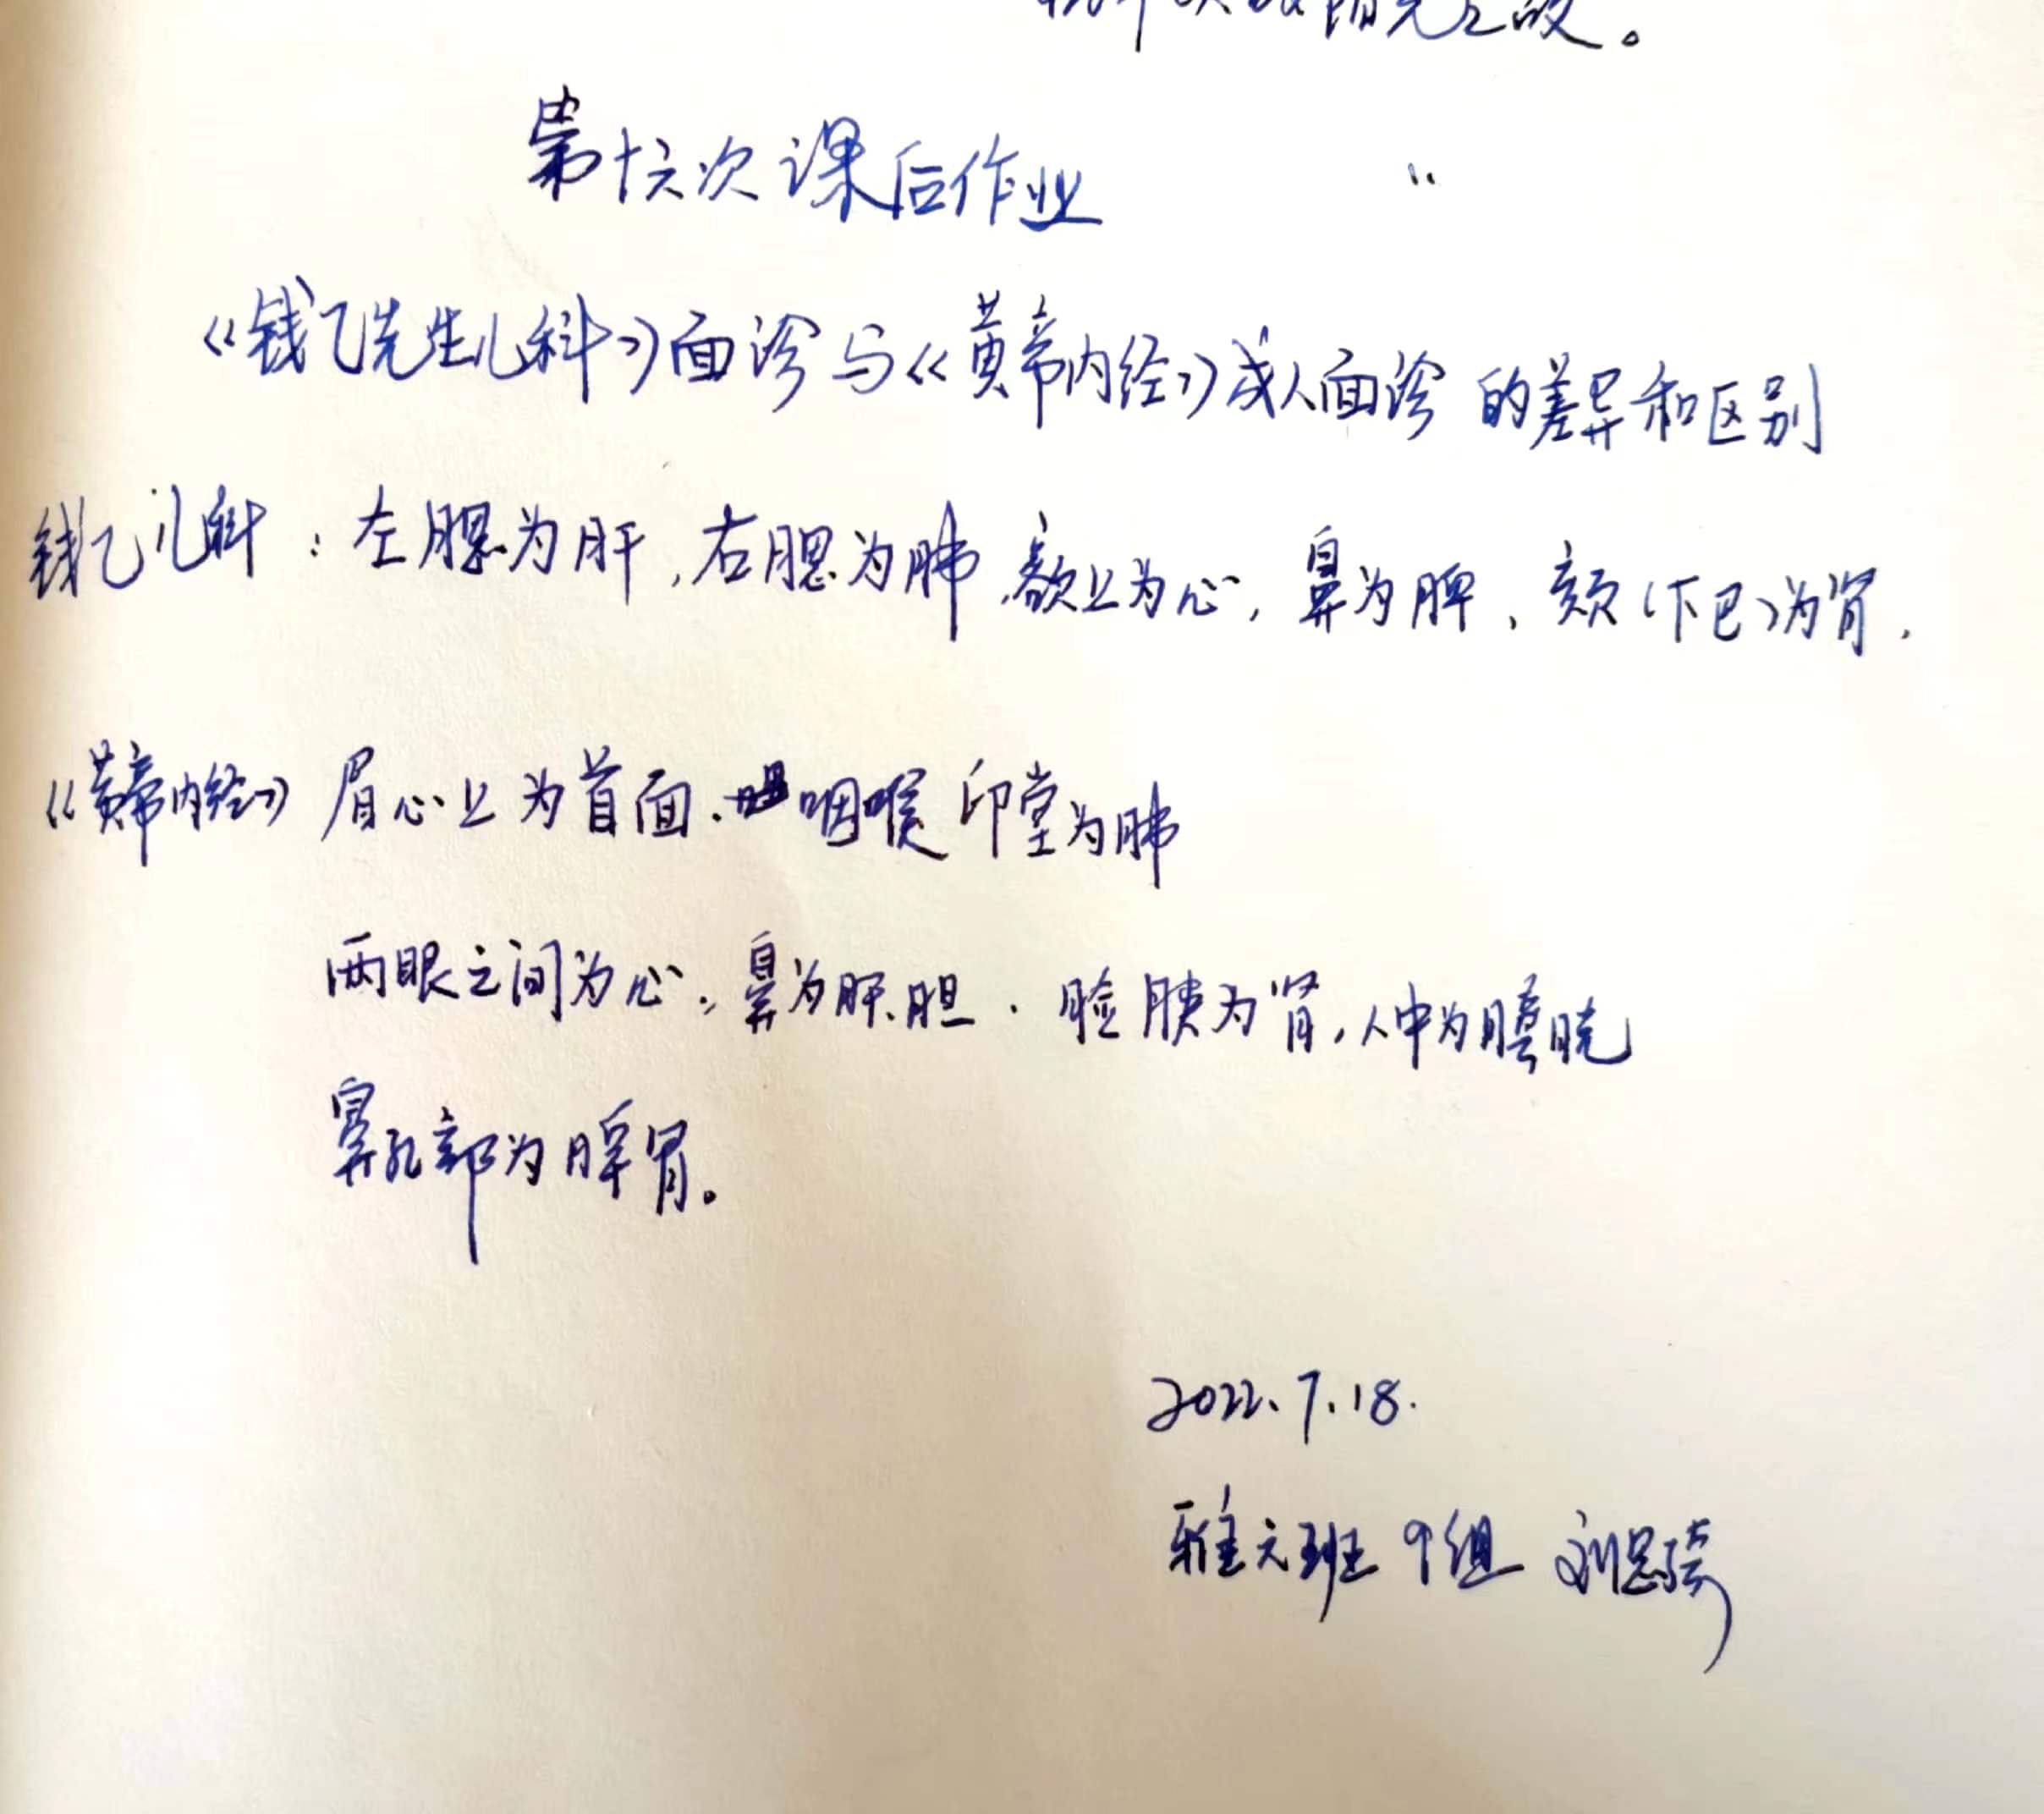 之故。
第十六次课后作业
《钱乙先生儿科》面诊与《黄帝内经》成人面诊的差异和区别
钱乙儿科：左腮为肝，右腮为肺，额上为心，鼻为脾，颏（下巴）为肾，
《黄帝内经》眉心上为首面.咽喉 印堂为肺
两眼之间为心，鼻为肝、胆.脸胰为肾，人中为膀胱
鼻孔部为脾胃。
2022.7.18.
雅元班 9组 刘思